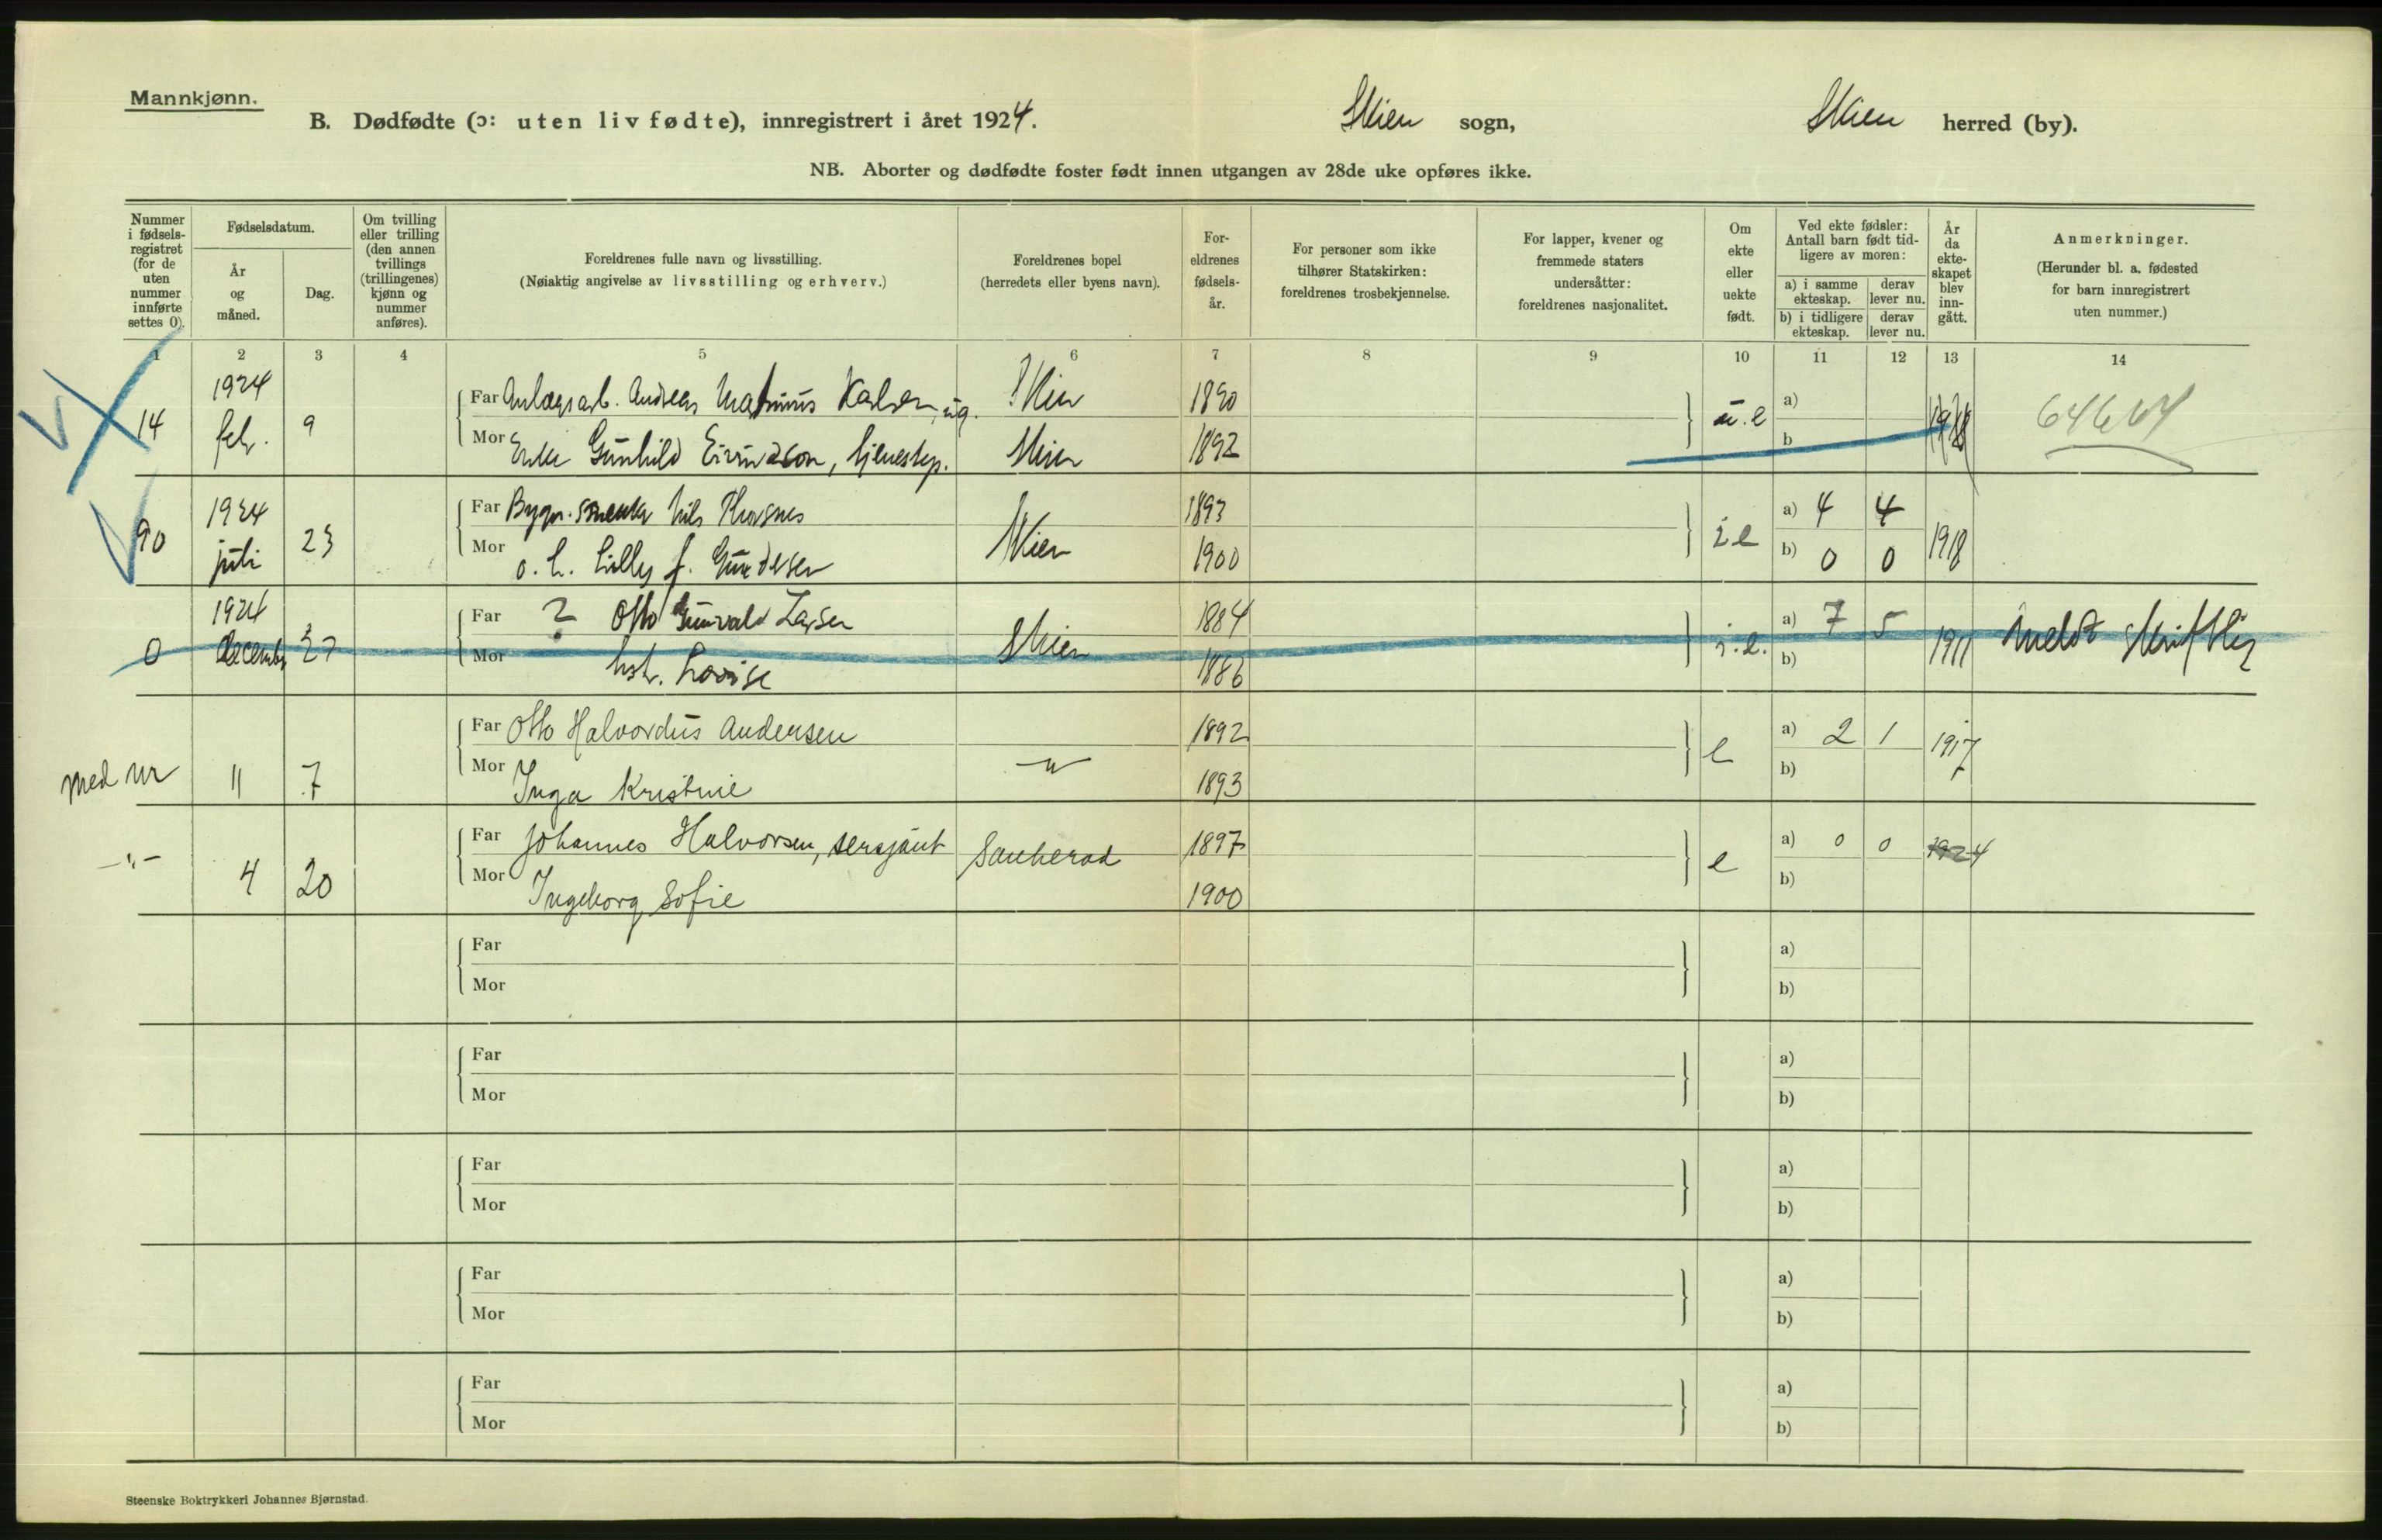 Mannkjønn.
B. Dødfødte (ɔ: uten liv fødte), innregistrert i året 1924. Skien sogn, Skien herred (by).
NB. Aborter og dødfødte foster født innen utgangen av 28de uke opføres ikke.
Nummer i fødsels-registret (for de uten nummer innførte settes 0).
Fødselsdatum.
År og måned.
Dag.
Om tvilling eller trilling (den annen tvillings (trillingenes) kjønn og nummer anføres).
Foreldrenes fulle navn og livsstilling.
(Nøiaktig angivelse av livsstilling og erhverv.)
Foreldrenes bopel
(herredets eller byens navn).
For-eldrenes fødsels-år.
For personer som ikke tilhører Statskirken: foreldrenes trosbekjennelse.
For lapper, kvener og fremmede staters undersåtter: foreldrenes nasjonalitet.
Om ekte eller uekte født.
Ved ekte fødsler: Antall barn født tid-ligere av moren:
a) i samme ekteskap.
derav lever nu.
b) i tidligere ekteskap.
derav lever nu.
År da ekte-skapet blev inn-gått.
Anmerkninger.
(Herunder bl. a. fødested for barn innregistrert uten nummer.)
1 2 3 4 5 6 7 8 9 10 11 12 13 14
1924
14 febr. 9
Far Anlægsarb. Andreas Karlsen, ug. Skien 1890 u.e a)
Mor Enke Gunhild Eivindson, tjenestep. Skien 1892 b
64604
1924
90 juli 23
Far Bygn.snekker Nils 1893 i e a) 4 4
Mor o. h. Lilly f. Gundersen Skien 1900 b) 0 0 1918
1924
0 december 27
Far ? Otto Gunvald Larsen 1884 i.e. a) 7 5 Meldt skriftlig
Mor hst. Lovise Skien 1886 b) 1911
Med nr 11 7
Far Otto Halvordus Andersen 1892 e a) 2 1 1917
Mor Inga Kristine —"— 1893 b)
—"— 4 20
Far Johannes Halvorsen, sersjant Sauherad 1897 e a) 0 0 1924
Mor Ingeborg Sofie 1900 b)
Far a)
Mor b)
Far a)
Mor b)
Far a)
Mor b)
Far a)
Mor b)
Far a)
Mor b)
Steenske Boktrykkeri Johannes Bjørnstad.